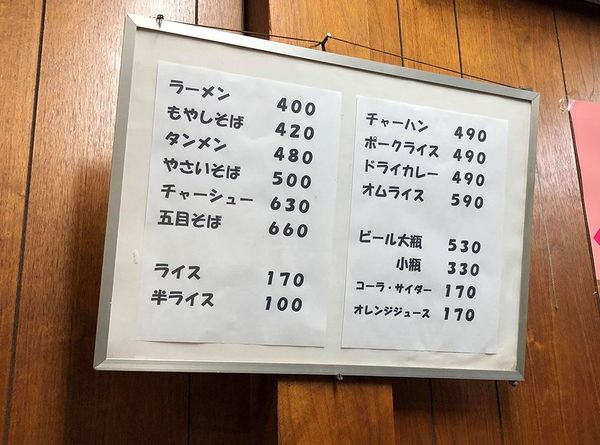 ラーメン 400
もやしそば 420
タンメン 480
やさいそば 500
チャーシュー 630
五目そば 660
ライス 170
半ライス 100
チャーハン 490
ポークライス 490
ドライカレー 490
オムライス 590
ビール大瓶 530
小瓶 330
コーラ・サイダー 170
オレンジジュース 170